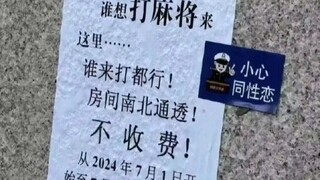 谁想打麻将来
这里······
谁来打都行！
房间南北通透！
不收费！
从2024年7月1日开
小心
同性恋